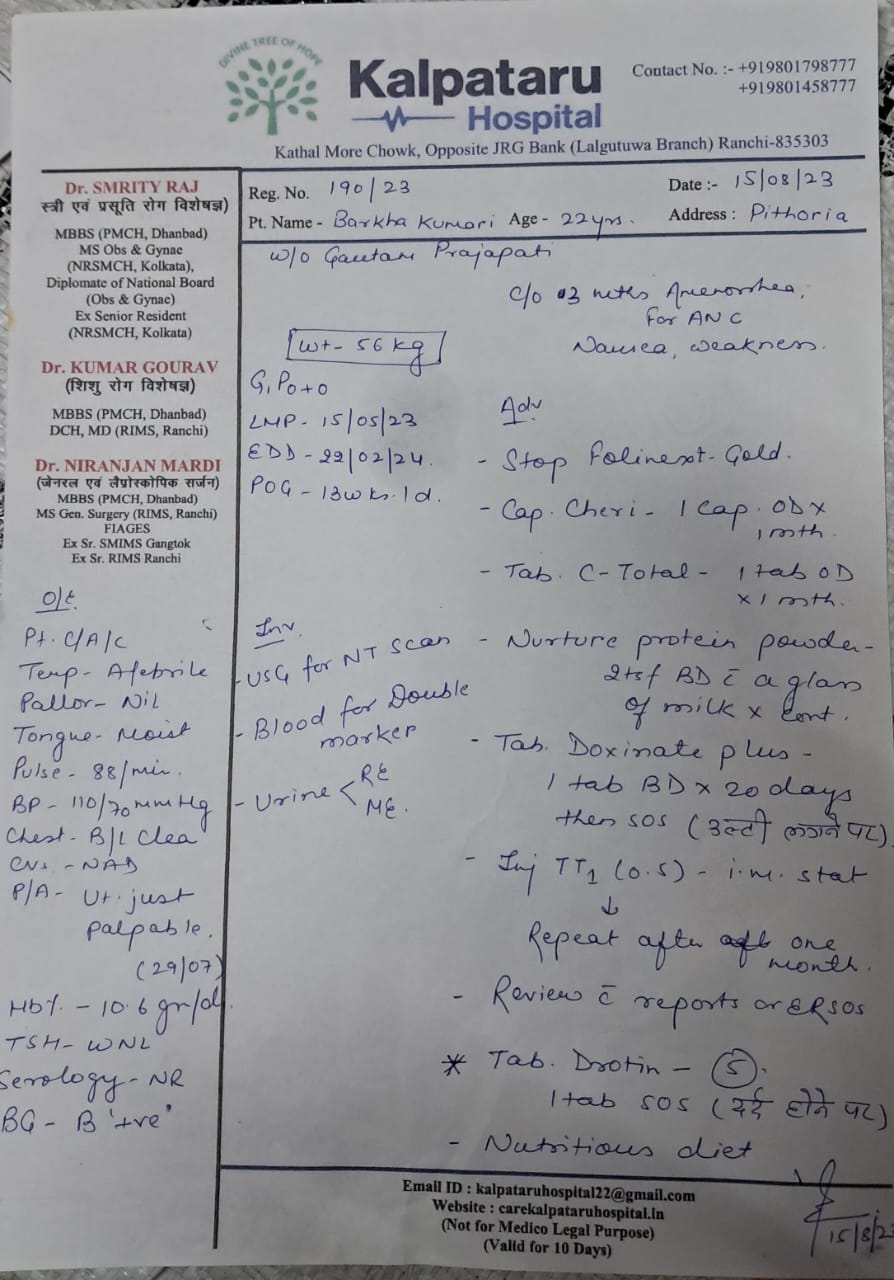 DIVINE TREE OF HOPE
Kalpataru
Hospital
Contact No. :- +919801798777
+919801458777
Kathal More Chowk, Opposite JRG Bank (Lalgutuwa Branch) Ranchi-835303
Dr. SMRITY RAJ
स्त्री एवं प्रसूति रोग विशेषज्ञ)
MBBS (PMCH, Dhanbad)
MS Obs & Gynac
(NRSMCH, Kolkata),
Diplomate of National Board
(Obs & Gynac)
Ex Senior Resident
(NRSMCH, Kolkata)
Dr. KUMAR GOURAV
(शिशु रोग विशेषज्ञ)
MBBS (PMCH, Dhanbad)
DCH, MD (RIMS, Ranchi)
Dr. NIRANJAN MARDI
(जेनरल एवं लैप्रोस्कोपिक सर्जन)
MBBS (PMCH, Dhanbad)
MS Gen. Surgery (RIMS, Ranchi)
FIAGES
Ex Sr. SMIMS Gangtok
Ex Sr. RIMS Ranchi
O/E
Pt. C/A/C
Temp - Afebrile
Pallor - Nil
Tongue - Moist
Pulse - 88/min.
BP - 110/70 mmHg
Chest - B/L Clea
CVS - NAD
P/A - Ut. just
palpable.
(29/07)
Hb% - 10.6 gm/dl
TSH - WNL
Serology - NR
BG - B '+ve'
Reg. No. 190/23
Date :- 15/08/23
Pt. Name - Barkha Kumari Age - 22yrs.
Address : Pithoria
W/O Gautam Prajapati
C/O 3 mths Amenorrhea,
For ANC
Nausea, weakness.
Wt - 56 kg
G1P0+0
LMP - 15/05/23
EDD - 22/02/24.
POG - 13wks. 1d.
Inv.
- USG for NT Scan
- Blood for Double
marker
- Urine < RE
ME.
Adv
- Stop Folinext-Gold.
- Cap. Cheri - 1 cap. OD x
1 mth.
- Tab. C-Total - 1 tab OD
x 1 mth.
- Nurture protein powder -
2tsf BD c̄ a glass
of milk x cont.
- Tab. Doxinate plus -
1 tab BD x 20 days
then SOS (उल्टी लगने पर)
- Inj TT1 (0.5) - i.m. stat
↓
Repeat after one
month.
- Review c̄ reports or ERSOS
* Tab. Drotin - (5).
1 tab SOS (दर्द होने पर)
- Nutritious diet
15/8/23
Email ID : kalpataruhospital22@gmail.com
Website : carekalpataruhospital.in
(Not for Medico Legal Purpose)
(Valid for 10 Days)